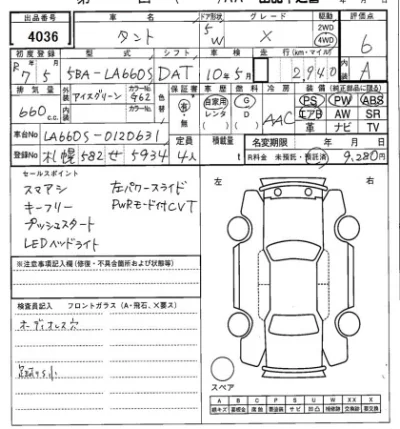 出品番号 車名 ドア形状 グレード 駆動 評価点
4036 タント 5 W X 2WD 4WD 6
初度登録 型式 シフト 車検 走行(km・マイル) 内装
R7 5 5BA-LA660S DAT 10年5月 2,940 A
排気量 外装 カラーNo. 色替 保証書 車歴 燃料 冷房 装備(純正部品に限る)
660 c.c. アイスグリーン G62 有・無 自家用 レンタ G D AAC PS PW ABS
内装 カラーNo. エアB AW SR
革 ナビ TV
車台No LA660S-0120631 定員 積載量 名変期限 年 月 日
登録No 札幌 582 せ 5934 4人 t R料金 未預託・預託済 9,280円
セールスポイント
スマアシ 左パワースライド
キーフリー PWRモード付CVT
プッシュスタート
LEDヘッドライト
左 右
※注意事項記入欄(修復・不具合箇所および状態等)
検査員記入 フロントガラス(A・飛石、X要ス)
オーディオレス穴
スペア
A B C P S U W X XX